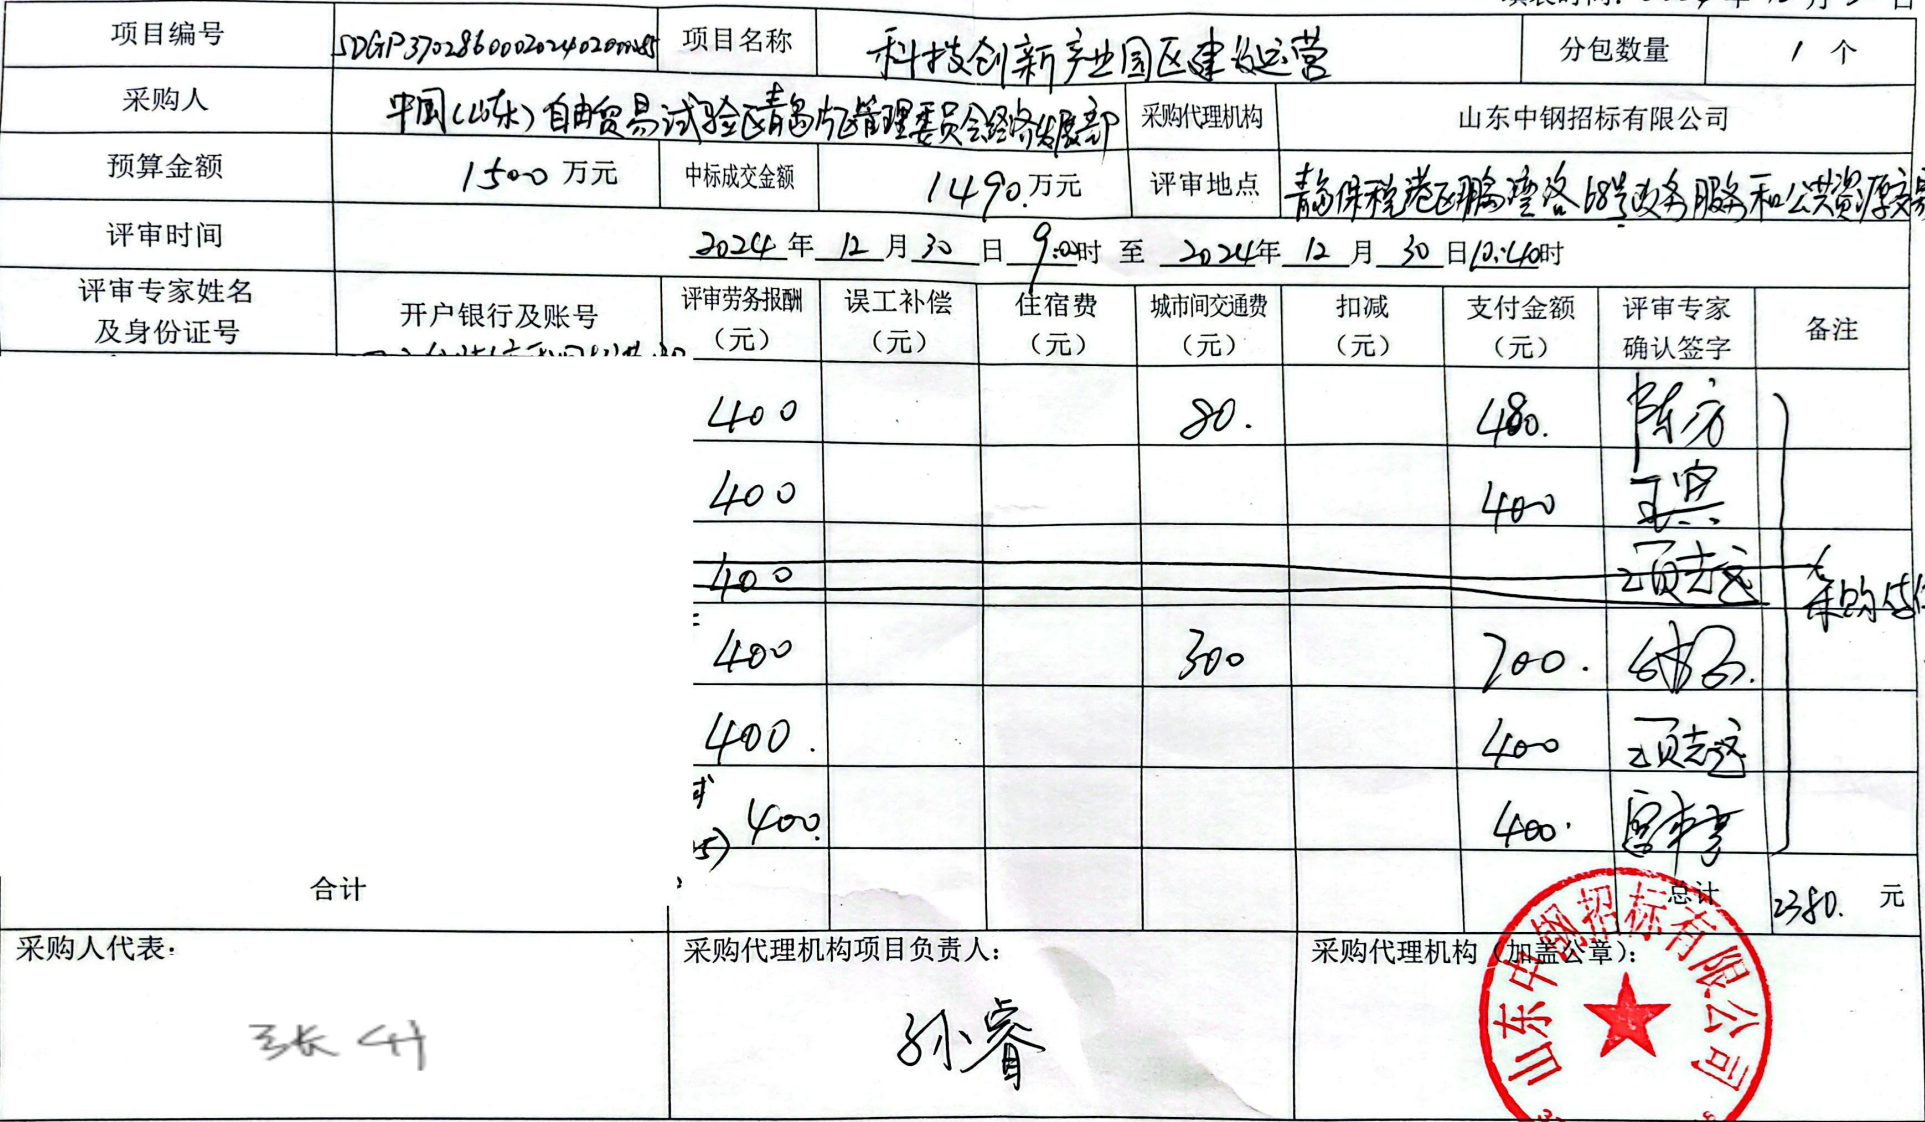 项目编号 SDGP370286000202402000285 项目名称 科技创新产业园区建设运营 分包数量 1 个
采购人 中国(山东)自由贸易试验区青岛片区管理委员会经济发展部 采购代理机构 山东中钢招标有限公司
预算金额 1500 万元 中标成交金额 1490.万元 评审地点 青岛保税港区鹏湾路68号政务服务和公共资源交易
评审时间 2024 年 12 月 30 日 9:00时 至 2024年 12 月 30 日12:40时
评审专家姓名及身份证号 开户银行及账号 评审劳务报酬(元) 误工补偿(元) 住宿费(元) 城市间交通费(元) 扣减(元) 支付金额(元) 评审专家确认签字 备注
400 80. 480. 陈方
400 400 王宾
400 项志远
采购
400 300 700.
400. 400 项志远
400. 400.
合计 总计 2380. 元
采购人代表: 采购代理机构项目负责人: 采购代理机构(加盖公章):
张 孙睿
山东中钢招标有限公司